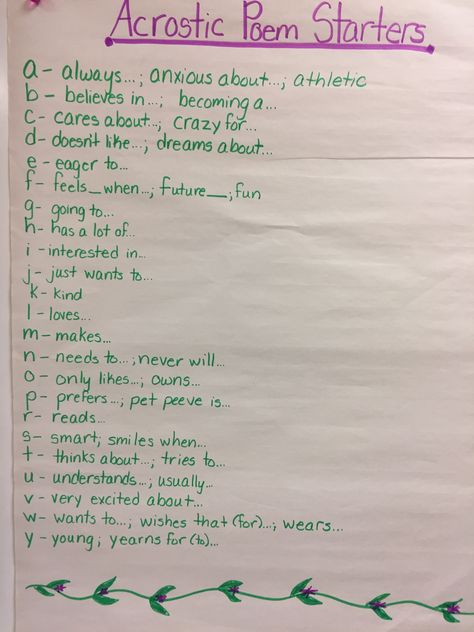 Acrostic Poem Starters
a- always...; anxious about...; athletic
b- believes in...; becoming a...
c- cares about...; crazy for...
d- doesn't like...; dreams about...
e- eager to...
f- feels__when...; future__; fun
g- going to...
h- has a lot of...
i - interested in...
j- just wants to...
k- kind
l - loves...
m- makes...
n- needs to...; never will...
o- only likes...; owns...
p- prefers...; pet peeve is...
r- reads...
s- smart; smiles when...
t- thinks about...; tries to...
u- understands...; usually...
v- very excited about...
w- wants to...; wishes that (for)...; wears...
y- young; yearns for (to)...